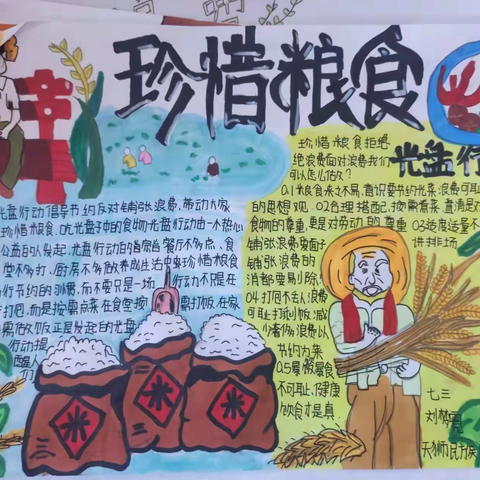 珍惜粮食
光盘行
光盘行动倡导节约反对铺张浪费,带动大家
珍惜粮食、吃光盘子中的食物光盘行动由一批热心
公益的人发起,光盘行动的宗旨:餐厅不多点、食
堂不多打、厨房不多做养成生活中珍惜粮食
行节约的习惯,而不要只是一场行动不只是在
打包,而是按需点菜在食堂按需打饭,在家
需做饭正是发起的光盘
行动提
醒人
们
珍惜粮食拒绝
绝浪费面对浪费我们
可以怎么做?
0.1粮食来之不易,意识要节约光荣,浪费可耻
的思想观.02合理搭配,按需点菜,
食物的尊重,更是对劳动的尊重03适度适量不
铺张浪费要面子讲排场
铺张浪费的
消都要易别除!
04.打包不丢人浪费
可耻打打包,减
少奢侈浪费以
节约为荣
0.5暴饮暴食
不可耻,健康
饮食才是真
米
米
米
七三
刘梦